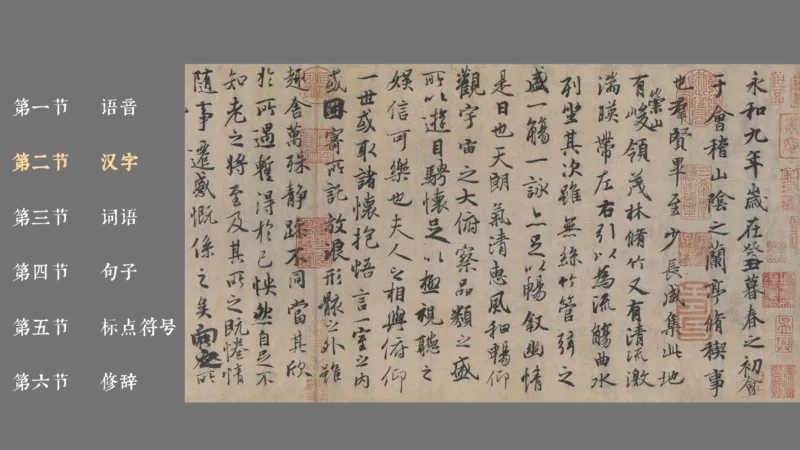 第一节 语音
第二节 汉字
第三节 词语
第四节 句子
第五节 标点符号
第六节 修辞
永和九年歲在癸丑暮春之初會
于會稽山陰之蘭亭脩稧事
也羣賢畢至少長咸集此地
有崇山峻領茂林脩竹又有清流激
湍暎帶左右引以為流觴曲水
列坐其次雖無絲竹管弦之
盛一觴一詠亦足以暢敘幽情
是日也天朗氣清惠風和暢仰
觀宇宙之大俯察品類之盛
所以遊目騁懷足以極視聽之
娛信可樂也夫人之相與俯仰
一世或取諸懷抱悟言一室之內
或因寄所託放浪形骸之外雖
趣舍萬殊靜躁不同當其欣
於所遇暫得於己怏然自足不
知老之將至及其所之既惓情
隨事遷感慨係之矣向之所